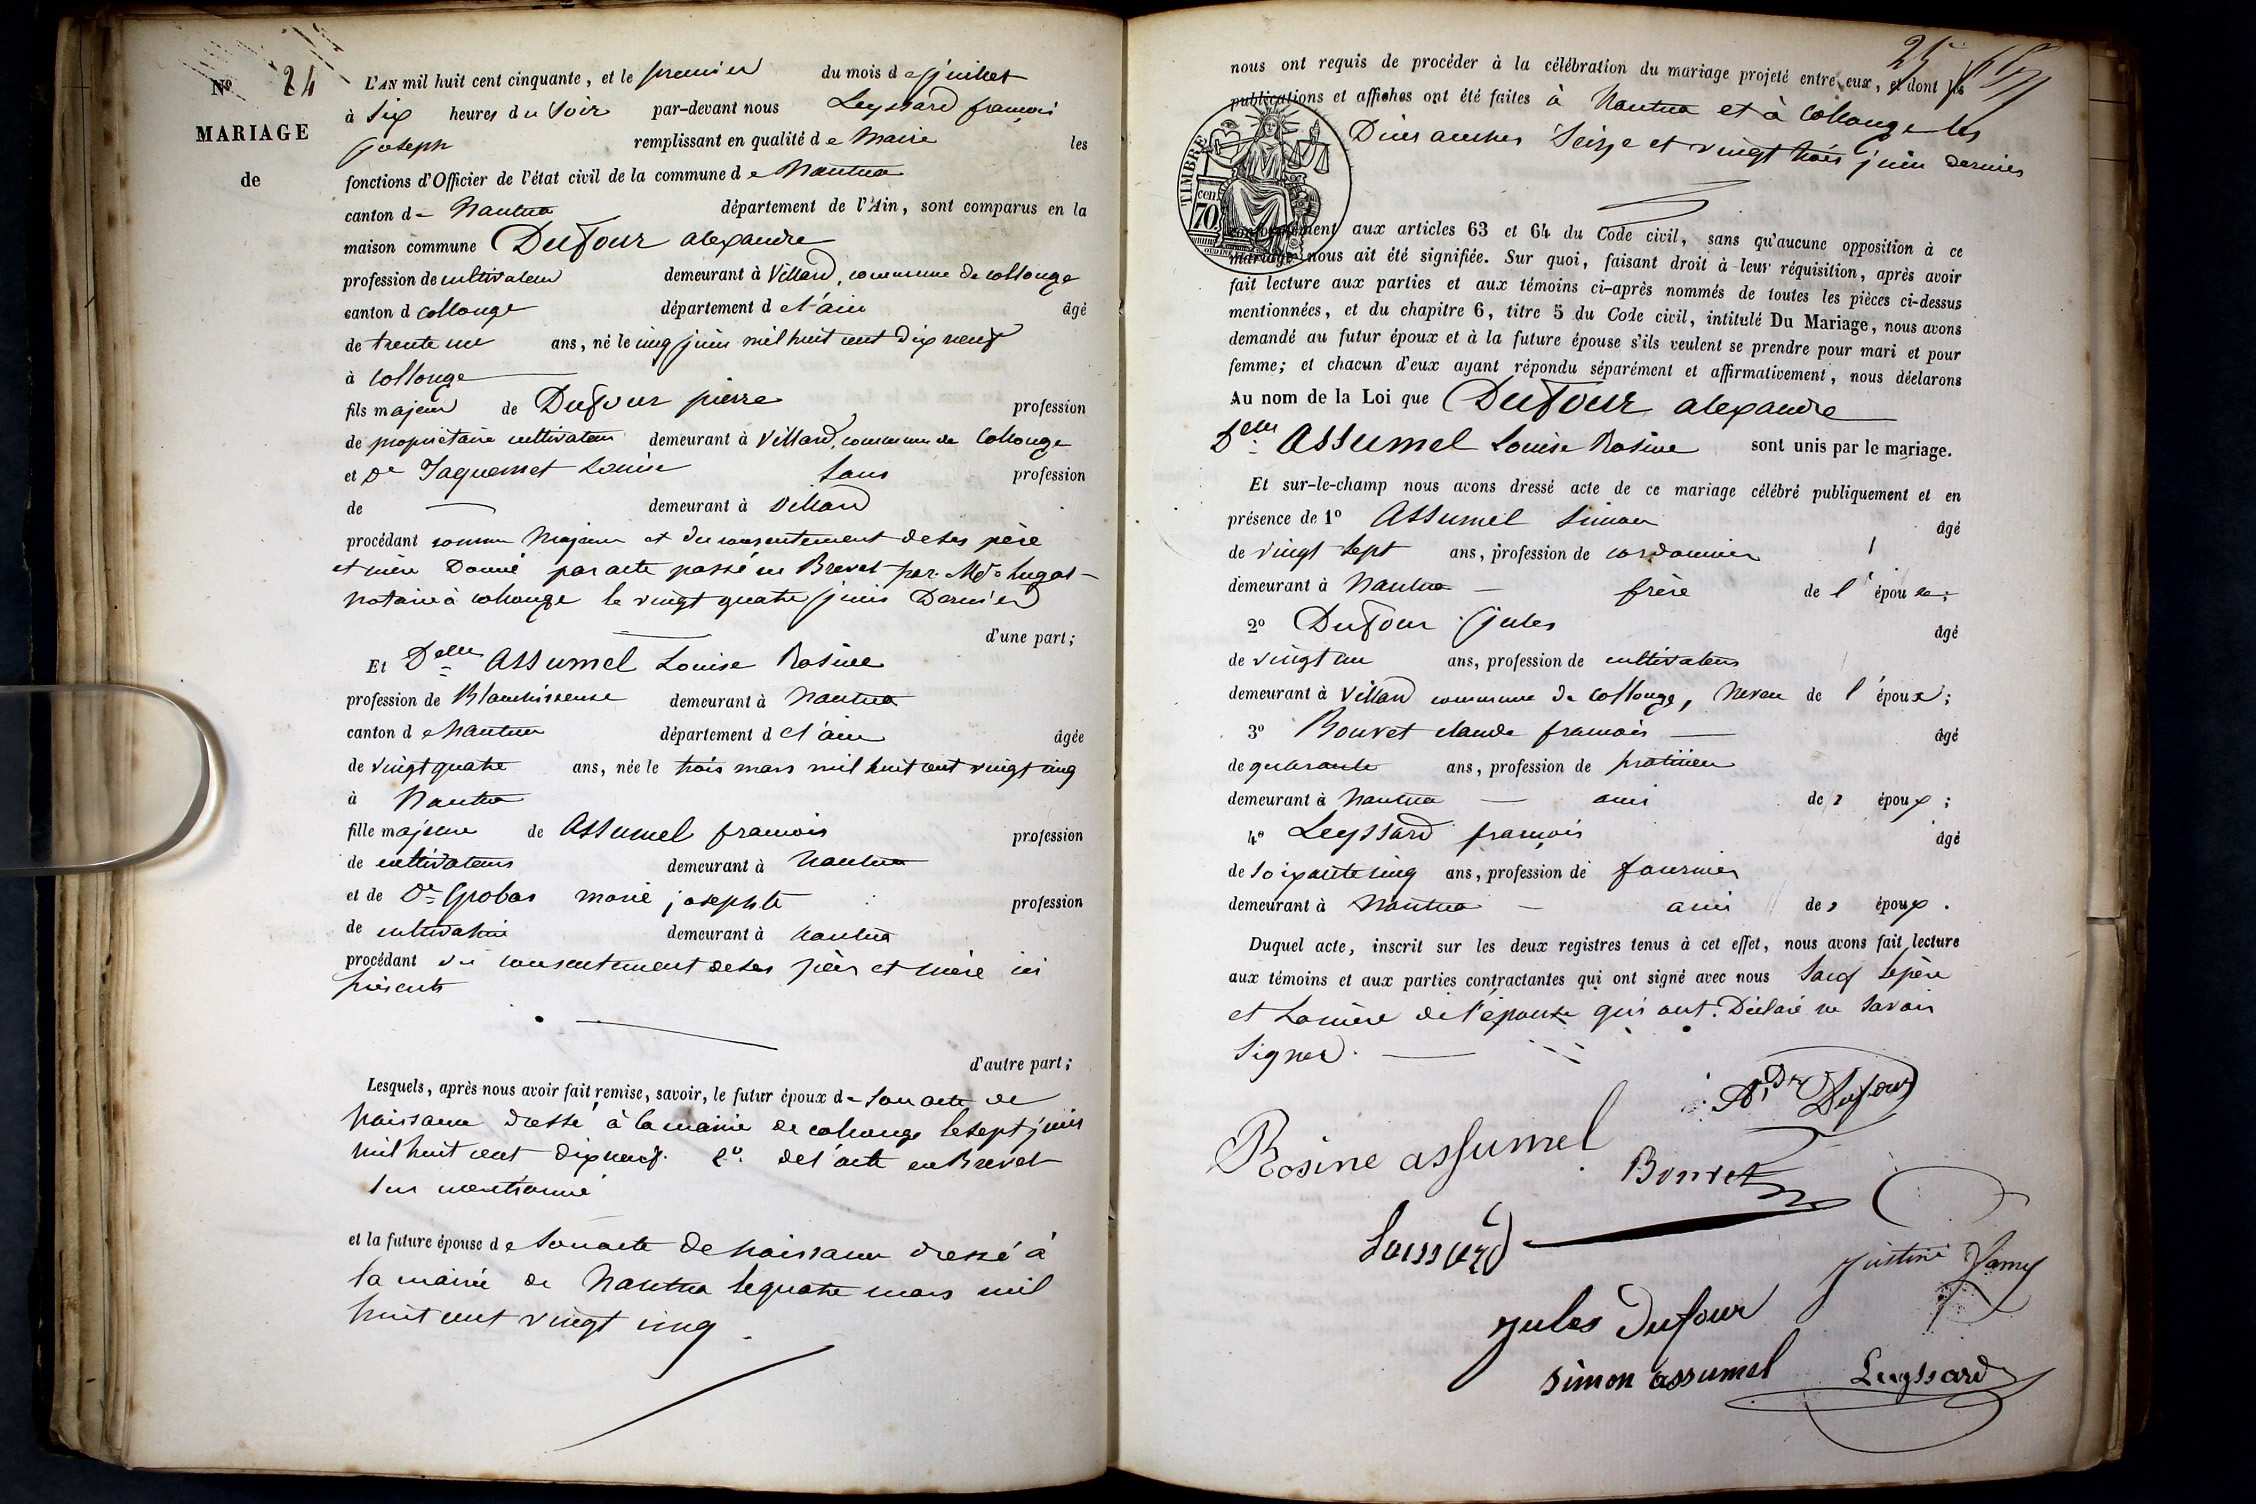 N° 24
MARIAGE
de
L'AN mil huit cent cinquante, et le premier du mois de juillet
à Six heures du Soir par-devant nous Leyssard françois
joseph remplissant en qualité de Maire les
fonctions d'Officier de l'état civil de la commune de Nantua
canton de Nantua département de l'Ain, sont comparus en la
maison commune Dufour alexandre
profession de cultivateur demeurant à Villard, commune de collonge
canton d collonge département de l'ain âgé
de trente un ans, né le cinq juin mil huit cent dix neuf
à collonge
fils majeur de Dufour pierre profession
de propriétaire cultivateur demeurant à Villard, commune de Collonge
et de Jaquemet Louise Sans profession
de demeurant à Villard
procédant comme Majeur et du consentement de ses père
et mère Donné par acte passé en Brevet par Me
notaire à collonge le vingt quatre juin Dernier
d'une part;
Et Delle Assumel Louise Rosine
profession de Blanchisseuse demeurant à Nantua
canton de Nantua département de l'ain âgée
de vingt quatre ans, née le trois mars mil huit cent vingt cinq
à Nantua
fille majeure de Assumel francois profession
de cultivateurs demeurant à Nantua
et de De Grobas marie josephte profession
de cultivatrice demeurant à Nantua
procédant du consentement de ses père et mère ici
présents
d'autre part;
Lesquels, après nous avoir fait remise, savoir, le futur époux de son acte de
naissance dressé à la mairie de collonge le sept juin
mil huit cent dix neuf. 2°. de l'acte en Brevet
sus mentionné
et la future épouse de son acte de naissance dressé à
la mairie de Nantua le quatre mars mil
huit cent vingt cinq.
25
nous ont requis de procéder à la célébration du mariage projeté entre eux, et dont les
publications et affiches ont été faites à Nantua et à Collonge les
Dimanches Seize et vingt trois juin dernier
TIMBRE
cen
70
conformément aux articles 63 et 64 du Code civil, sans qu'aucune opposition à ce
mariage nous ait été signifiée. Sur quoi, faisant droit à leur réquisition, après avoir
fait lecture aux parties et aux témoins ci-après nommés de toutes les pièces ci-dessus
mentionnées, et du chapitre 6, titre 5 du Code civil, intitulé Du Mariage, nous avons
demandé au futur époux et à la future épouse s'ils veulent se prendre pour mari et pour
femme; et chacun d'eux ayant répondu séparément et affirmativement, nous déclarons
Au nom de la Loi que Dufour alexandre
Delle Assumel Louise Rosine sont unis par le mariage.
Et sur-le-champ nous avons dressé acte de ce mariage célébré publiquement et en
présence de 1° Assumel Simon âgé
de vingt sept ans, profession de cordonnier
demeurant à Nantua frère de l'épouse;
2° Dufour jules âgé
de vingt un ans, profession de cultivateur
demeurant à Villard commune de Collonge, Neveu de l'époux;
3° Bouvet claude francois âgé
de quarante ans, profession de praticien
demeurant à Nantua ami des époux;
4° Leyssard françois âgé
de soixante cinq ans, profession de fournier
demeurant à Nantua ami des époux.
Duquel acte, inscrit sur les deux registres tenus à cet effet, nous avons fait lecture
aux témoins et aux parties contractantes qui ont signé avec nous Sauf le père
et la mère de l'épouse qui ont Déclaré ne savoir
Signer.
Dufour
Rosine assumel
Bouvet
Justine Jamy
jules Dufour
simon assumel
Leyssard